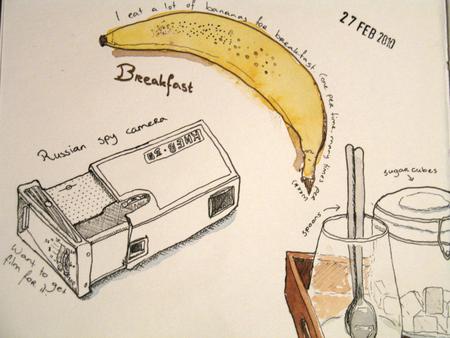 I eat a lot of bananas for breakfast (one per time, many times per week)
27 FEB 2010
Breakfast
Russian spy camera
sugarcubes
spoons
Want to get
film for it